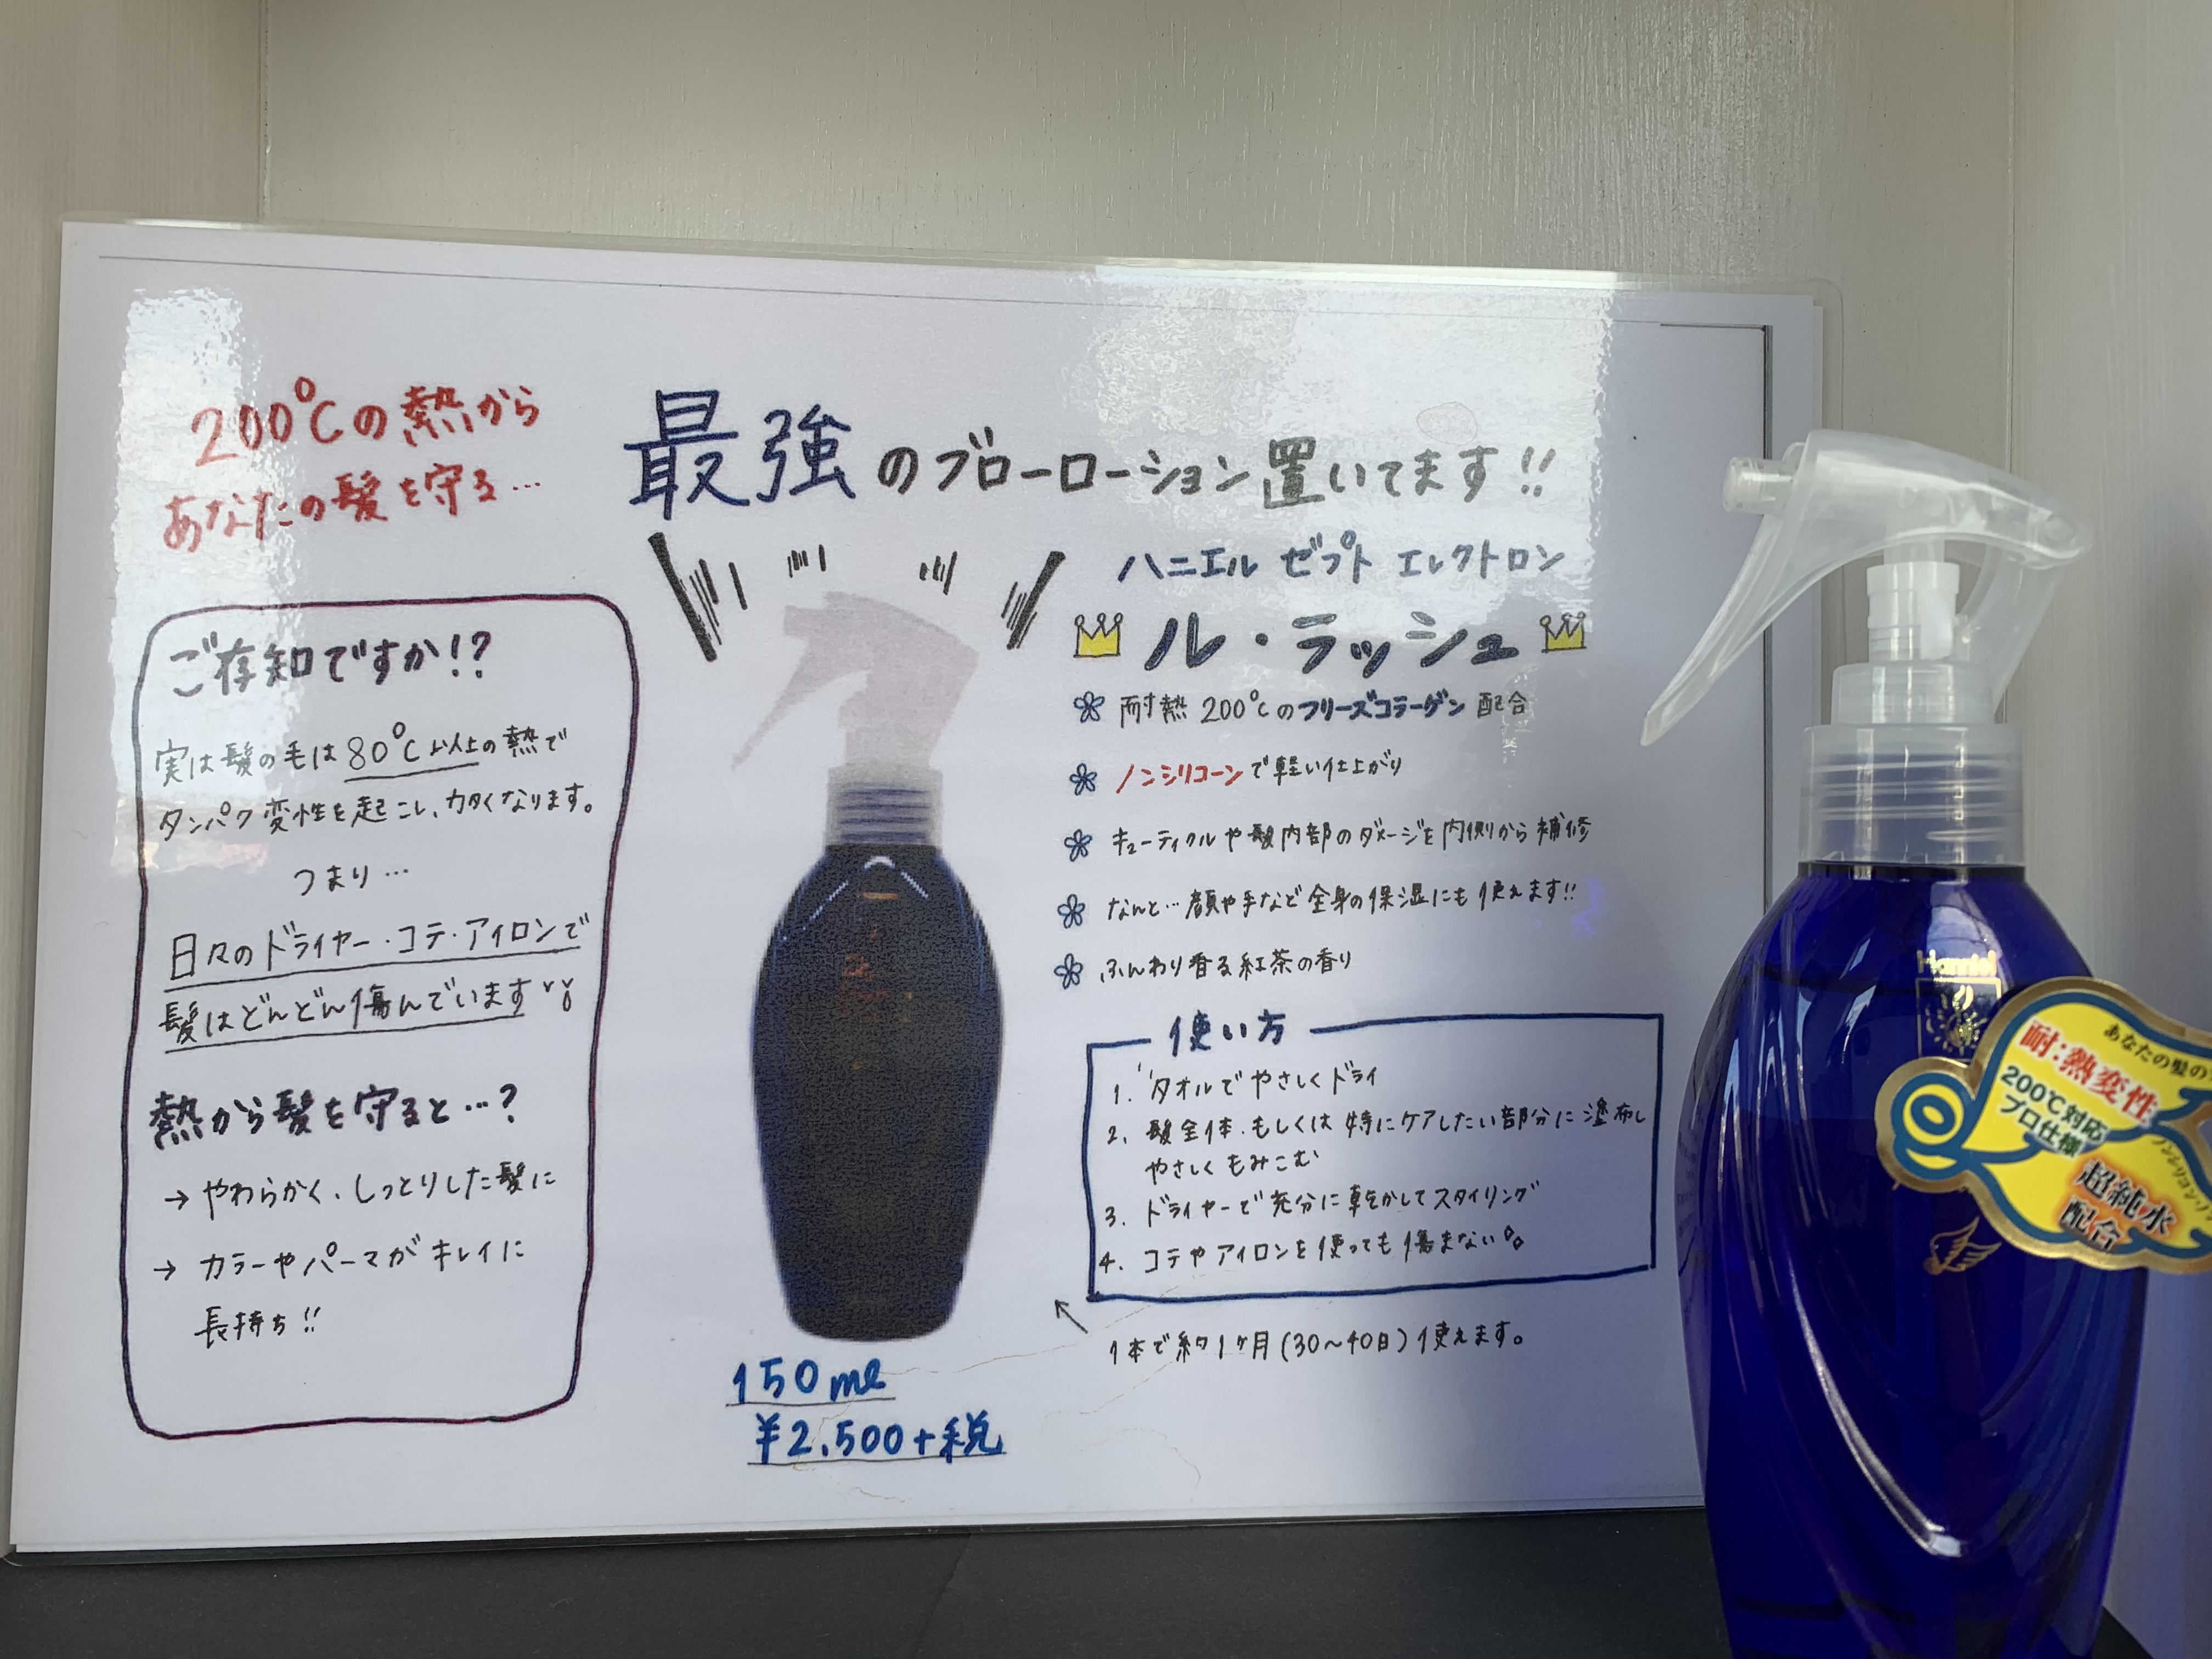 200℃の熱から
あなたの髪を守る…
最強のブローローション置いてます!!
ご存知ですか!?
実は髪の毛は80℃以上の熱で
タンパク変性を起こし、カタくなります。
つまり…
日々のドライヤー・コテ・アイロンで
髪はどんどん傷んでいます
熱から髪を守ると…?
→ やわらかく、しっとりした髪に
→ カラーやパーマがキレイに
長持ち!!
150ml
¥2,500+税
ハニエル ゼプト エレクトロン
ル・ラッシュ
耐熱200℃のフリーズコラーゲン配合
ノンシリコーンで軽い仕上がり
キューティクルや髪内部のダメージを内側から補修
なんと…顔や手など全身の保湿にも使えます!!
ふんわり香る紅茶の香り
使い方
1. タオルでやさしくドライ
2. 髪全体、もしくは特にケアしたい部分に塗布し
やさしくもみこむ
3. ドライヤーで充分に乾かしてスタイリング
4. コテやアイロンを使っても傷まない
1本で約1ヶ月(30~40日)使えます。
Hanniel
あなたの髪の
耐:熱変性
200℃対応
プロ仕様
ノンシリコン
超純水
配合